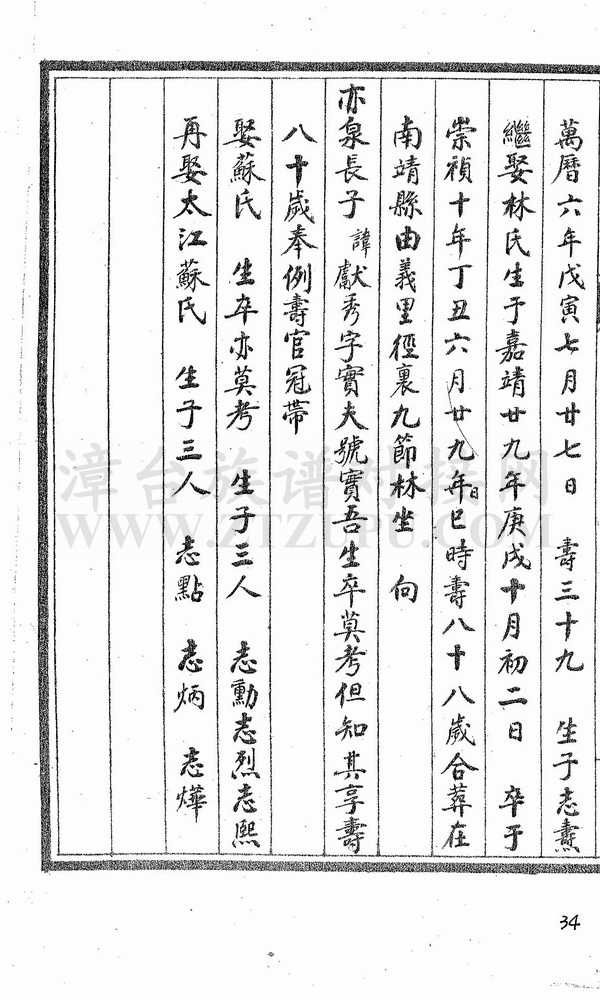 萬曆六年戊寅七月廿七日 壽三十九 生子志燾
繼娶林氏生于嘉靖廿九年庚戌十月初二日 卒于
崇禎十年丁丑六月廿九年日巳時壽八十八歲合葬在
南靖縣由義里徑裏九節林坐 向
亦泉長子 諱獻秀字實夫號實吾生卒莫考但知其享壽
八十歲奉例壽官冠帶
娶蘇氏 生卒亦莫考 生子三人 志勳志烈志熙
再娶太江蘇氏 生子三人 志點 志炳 志燁
漳台族谱对接网
WWW.ZTZUPU.COM
34